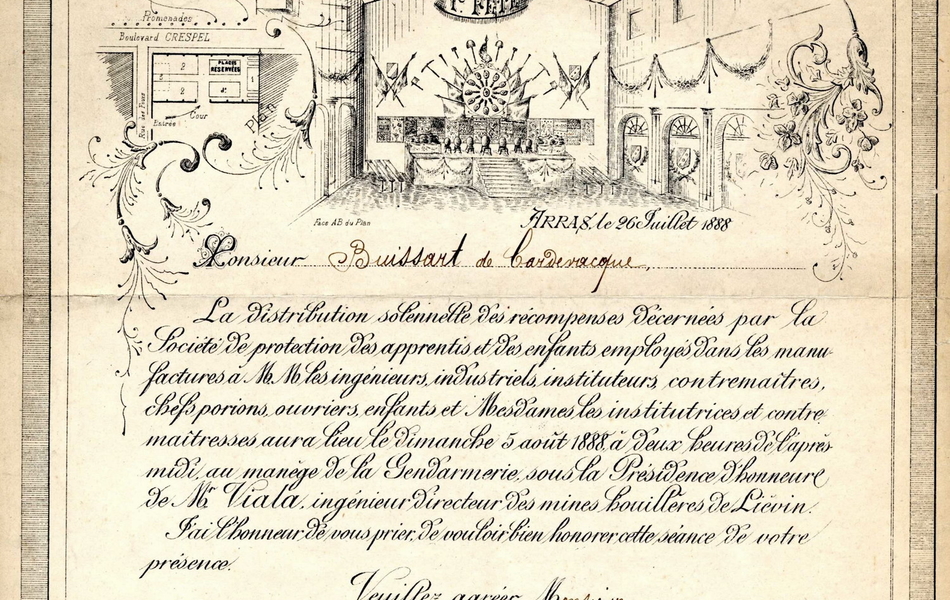 Promenades
Boulevard CRESPEL
PLACES
RÉSERVÉES
2
1
2
Rue des Fours
Cour
Entrée
Plan
1re FÊTE
Face AB du Plan
ARRAS, le 26 Juillet 1888
Monsieur Buissart de Cardevacque,
La distribution solennelle des récompenses décernées par la
Société de protection des apprentis et des enfants employés dans les manu-
factures à M.M. les ingénieurs, industriels, instituteurs, contremaîtres,
chefs porions, ouvriers, enfants et Mesdames les institutrices et contre
maîtresses aura lieu le dimanche 5 août 1888, à deux heures de l'après
midi, au manège de la Gendarmerie, sous la Présidence d'honneur
de Mr Viala, ingénieur directeur des mines houillères de Liévin.
J'ai l'honneur de vous prier, de vouloir bien honorer cette séance de votre
présence.
Veuillez agréer Monsieur